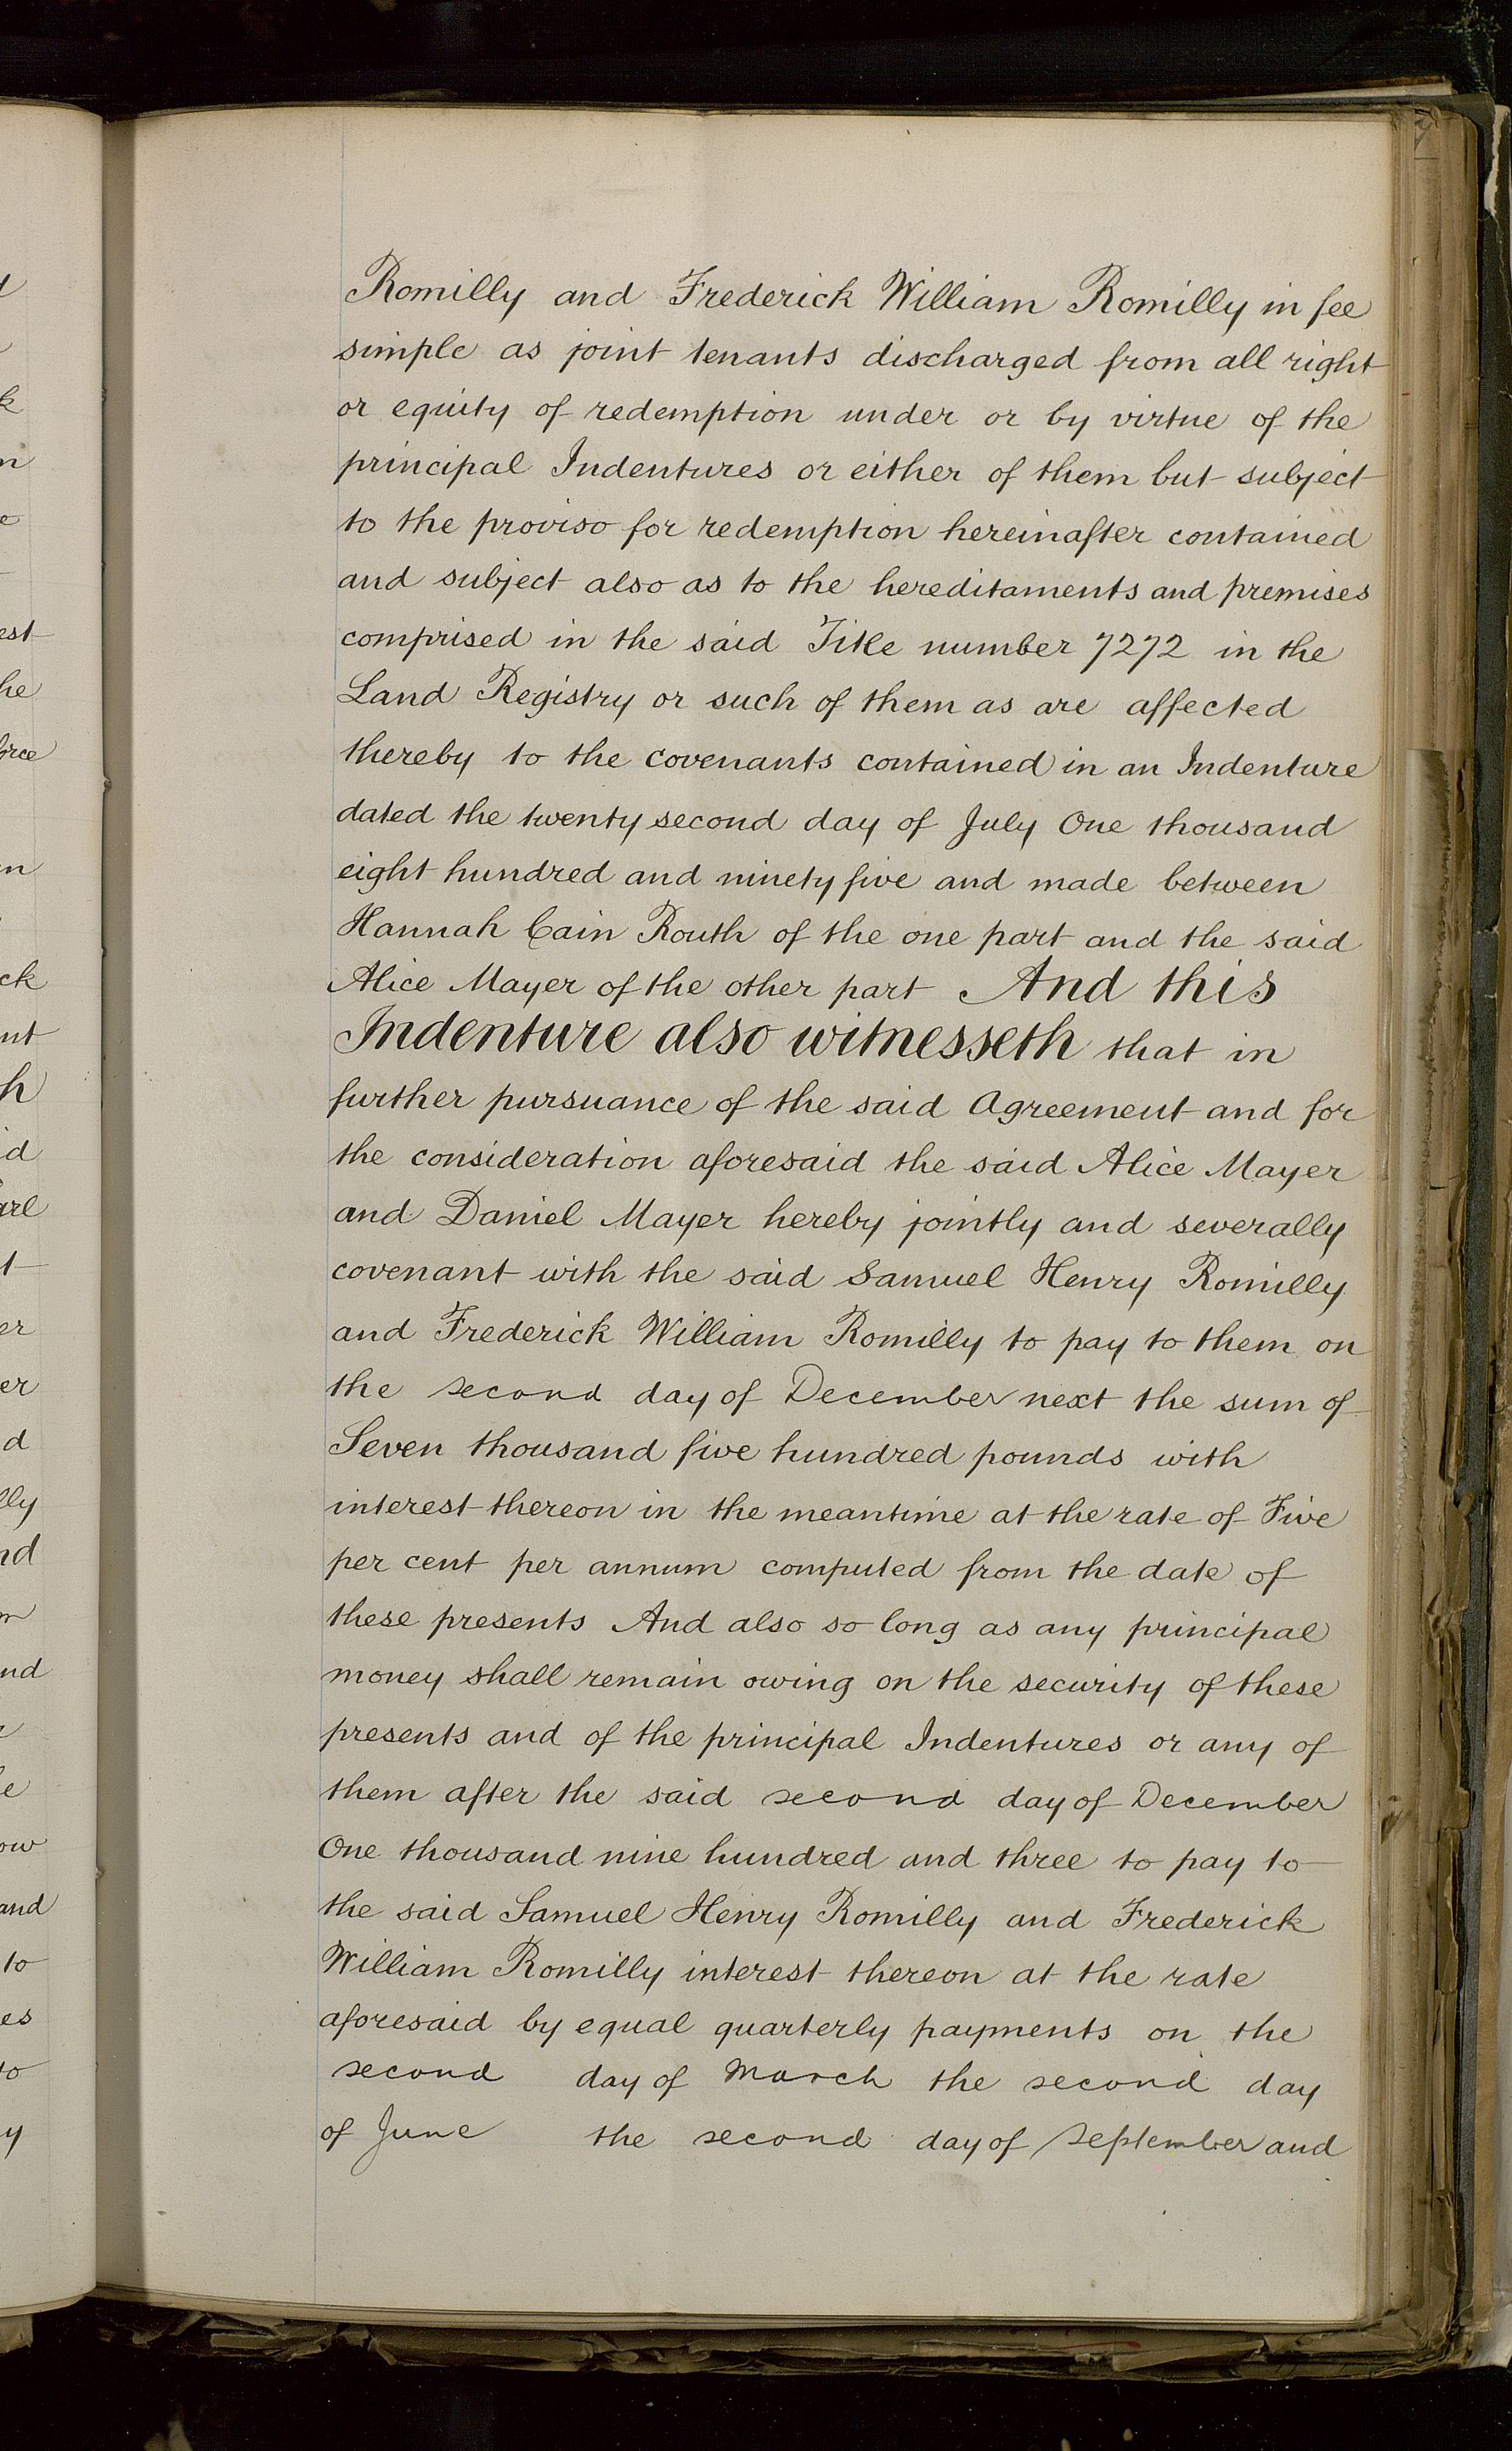 Romilly and Frederick William Romilly in fee
simple as joint tenants discharged from all right
or equity of redemption under or by virtue of the
principal Indentures or either of them but subject
to the proviso for redemption hereinafter contained
and subject also as to the hereditaments and premises
comprised in the said Title number 7272 in the
Land Registry or such of them as are affected
thereby to the covenants contained in an Indenture
dated the twenty second day of July One thousand
eight hundred and ninety five and made between
Hannah Cain Routh of the one part and the said
Alice Mayer of the other part And this
Indenture also witnesseth that in
further pursuance of the said Agreement and for
the consideration aforesaid the said Alice Mayer
and Daniel Mayer hereby jointly and severally
covenant with the said Samuel Henry Romilly
and Frederick William Romilly to pay to them on
the second day of December next the sum of
Seven thousand five hundred pounds with
interest thereon in the meantime at the rate of Five
per cent per annum computed from the date of
these presents And also so long as any principal
money shall remain owing on the security of these
presents and of the principal Indentures or any of
them after the said second day of December
One thousand nine hundred and three to pay to
the said Samuel Henry Romilly and Frederick
William Romilly interest thereon at the rate
aforesaid by equal quarterly payments on the
second day of March the second day
of June the second day of September and